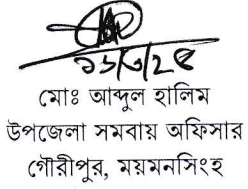 ১৬/৩/২৫
মোঃ আব্দুল হালিম
উপজেলা সমবায় অফিসার
গৌরীপুর, ময়মনসিংহ